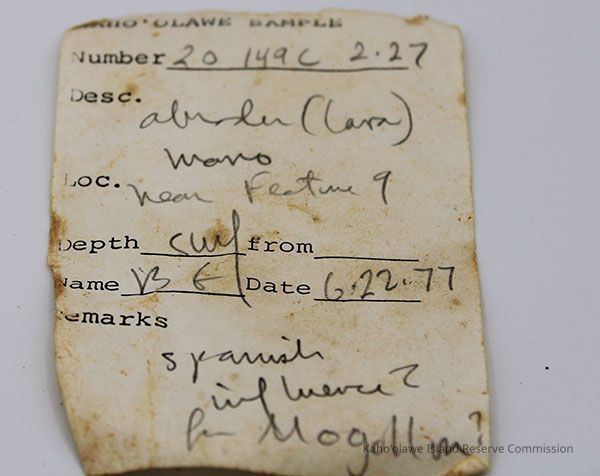 KAHO'OLAWE SAMPLE
Number 20 149C 2.27
Desc.
abrader (lava)
mano
Loc. near Feature 9
Depth surf from
Name B E Date 6.22.77
Remarks
spanish
influence?
Kaho'olawe Island Reserve Commission